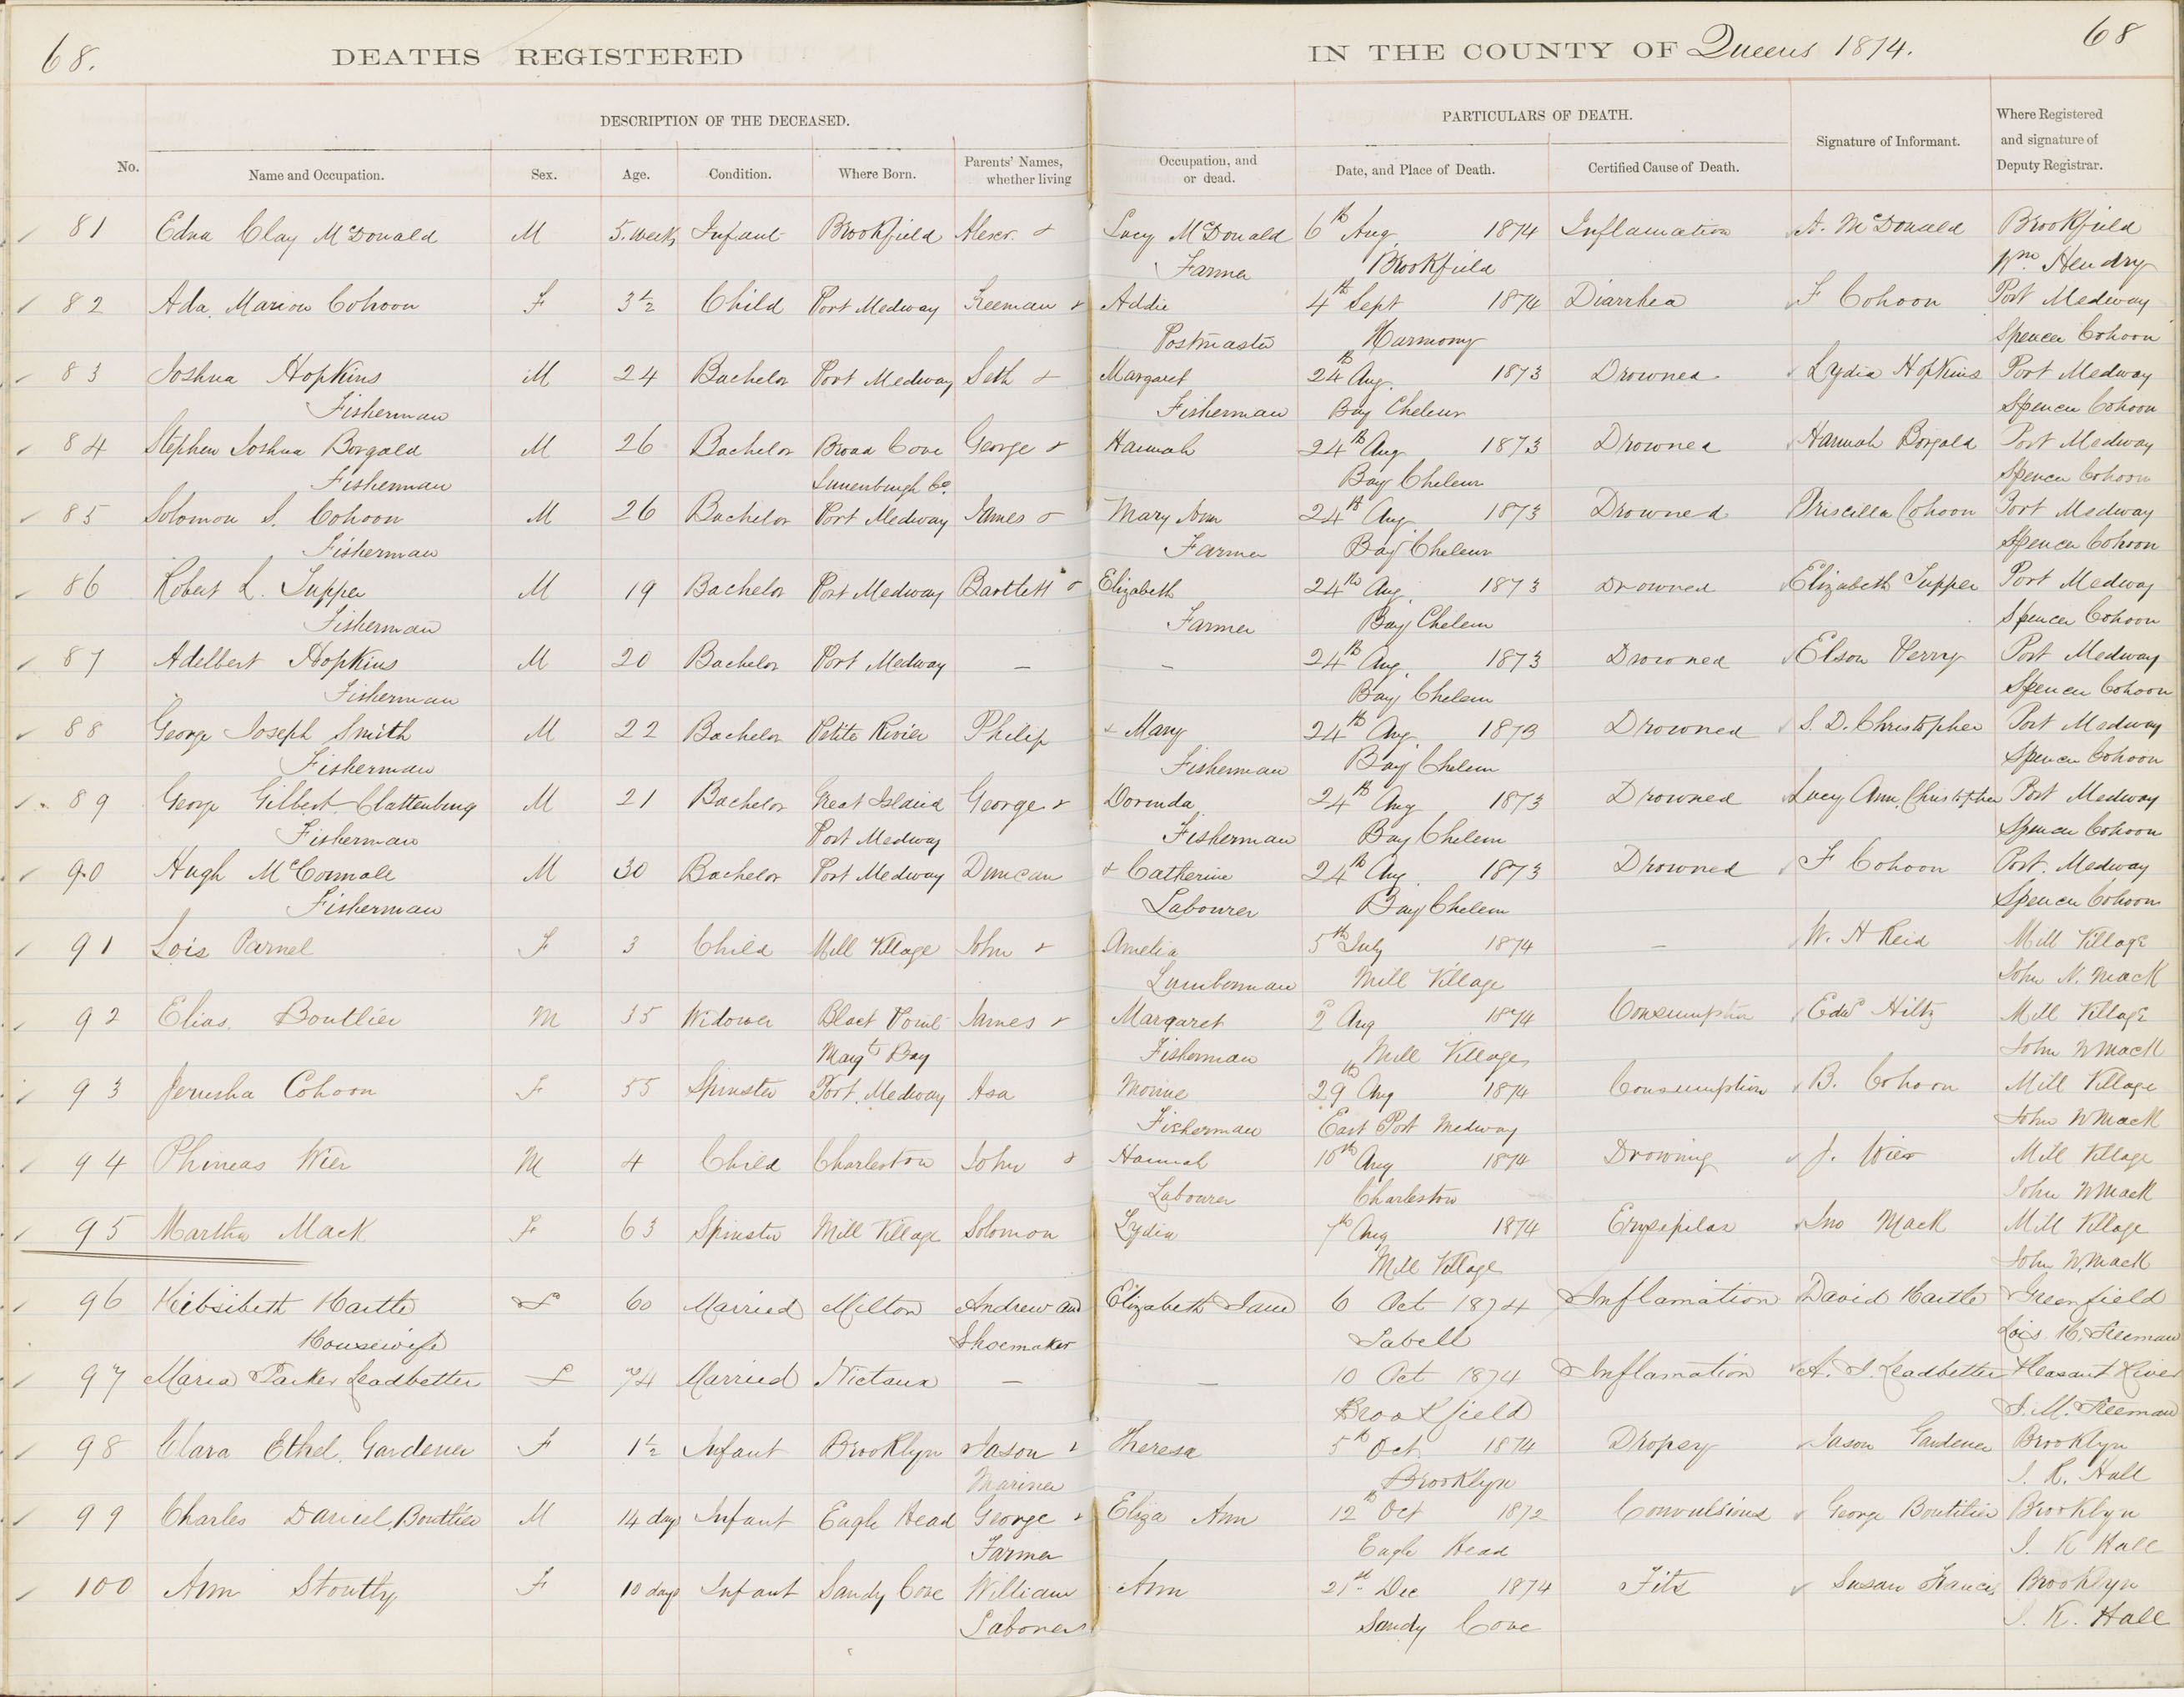 68.
DEATHS REGISTERED IN THE COUNTY OF Queens 1874.
68
DESCRIPTION OF THE DECEASED.
PARTICULARS OF DEATH.
No. Name and Occupation. Sex. Age. Condition. Where Born. Parents' Names, whether living Occupation, and or dead. Date, and Place of Death. Certified Cause of Death. Signature of Informant. Where Registered and signature of Deputy Registrar.
81 Edna Clay McDonald M 5. weeks Infant Brookfield Alexr. & Lucy McDonald 6th Aug 1874 Inflamation A. McDonald Brookfield
Farmer Brookfield Wm Hendry
82 Ada Marion Cohoon F 3½ Child Port Medway Freeman & Addie 4th Sept 1874 Diarrhea F Cohoon Port Medway
Postmaster Harmony Spencer Cohoon
83 Joshua Hopkins M 24 Bachelor Port Medway Seth & Margaret 24th Aug. 1873 Drowned Lydia Hopkins Port Medway
Fisherman Fisherman Bay Cheleur Spencer Cohoon
84 Stephen Joshua Borgald M 26 Bachelor Broad Cove George & Hannah 24th Aug 1873 Drowned Hannah Borgald Port Medway
Fisherman Lunenburgh Co. Bay Cheleur Spencer Cohoon
85 Solomon S. Cohoon M 26 Bachelor Port Medway James & Mary Ann 24th Aug 1873 Drowned Priscilla Cohoon Port Medway
Fisherman Farmer Bay Cheleur Spencer Cohoon
86 Robert L. Tupper M 19 Bachelor Port Medway Bartlett & Elizabeth 24th Aug. 1873 Drowned Elizabeth Tupper Port Medway
Fisherman Farmer Bay Cheleur Spencer Cohoon
87 Adelbert Hopkins M 20 Bachelor Port Medway — — 24th Aug. 1873 Drowned Elson Perry Port Medway
Fisherman Bay Cheleur Spencer Cohoon
88 George Joseph Smith M 22 Bachelor Petite Rivier Philip & Mary 24th Aug. 1873 Drowned S. D. Christopher Port Medway
Fisherman Fisherman Bay Cheleur Spencer Cohoon
89 George Gilbert Clattenburg M 21 Bachelor Great Island George & Dorinda 24th Aug 1873 Drowned Lucy Ann Christopher Port Medway
Fisherman Port Medway Fisherman Bay Cheleur Spencer Cohoon
90 Hugh McConnale M 30 Bachelor Port Medway Duncan & Catherine 24th Aug. 1873 Drowned F Cohoon Port Medway
Fisherman Labourer Bay Cheleur Spencer Cohoon
91 Lois Parnel F 3 Child Mill Village John & Amelia 5th July 1874 — W. H Reid Mill Village
Lumberman Mill Village John N. Mack
92 Elias Boutlier M 35 Widower Black Point James & Margaret 2 Aug 1874 Consumption Edwd Hiltz Mill Village
Margts Bay Fisherman Mill Village John N Mack
93 Jerusha Cohoon F 55 Spinster Port Medway Asa 29th Aug 1874 Consumption B. Cohoon Mill Village
Fisherman East Port Medway John N Mack
94 Phineas Wier M 4 Child Charleston John & Hannah 10th Aug 1874 Drowning J. Wier Mill Village
Labourer Charleston John N Mack
95 Martha Mack F 63 Spinster Mill Village Solomon Lydia 7th Aug 1874 Erysipilas Jno Mack Mill Village
Mill Village John N. Mack
96 Hibsibeth Hartle F 60 Married Milton Andrew and Elizabeth Jane 6 Oct 1874 Inflamation David Hartle Greenfield
Housewife Shoemaker Labell Lois H. Freeman
97 Maria Parker Leadbetter F 74 Married Nictaux — — 10 Oct 1874 Inflamation A. J. Leadbetter Pleasant River
Brookfield J. M. Freeman
98 Clara Ethel Gardener F 1½ Infant Brooklyn Jason & Theresa 5th Oct. 1874 Dropsy Jason Gardener Brooklyn
Mariner Brooklyn J. K. Hall
99 Charles Daniel Boutlier M 14 days Infant Eagle Head George & Eliza Ann 12th Oct 1872 Convulsions George Boutilier Brooklyn
Farmer Eagle Head J. K Hall
100 Ann Stoutly F 10 days Infant Sandy Cove William Ann 21st Dec 1874 Fits Susan Francis Brooklyn
Laborer Sandy Cove J. K. Hall